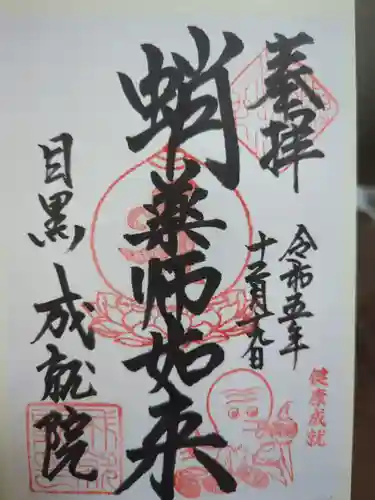 奉拝
令和五年
十二月二九日
健康成就
蛸薬師如来
目黒 成就院